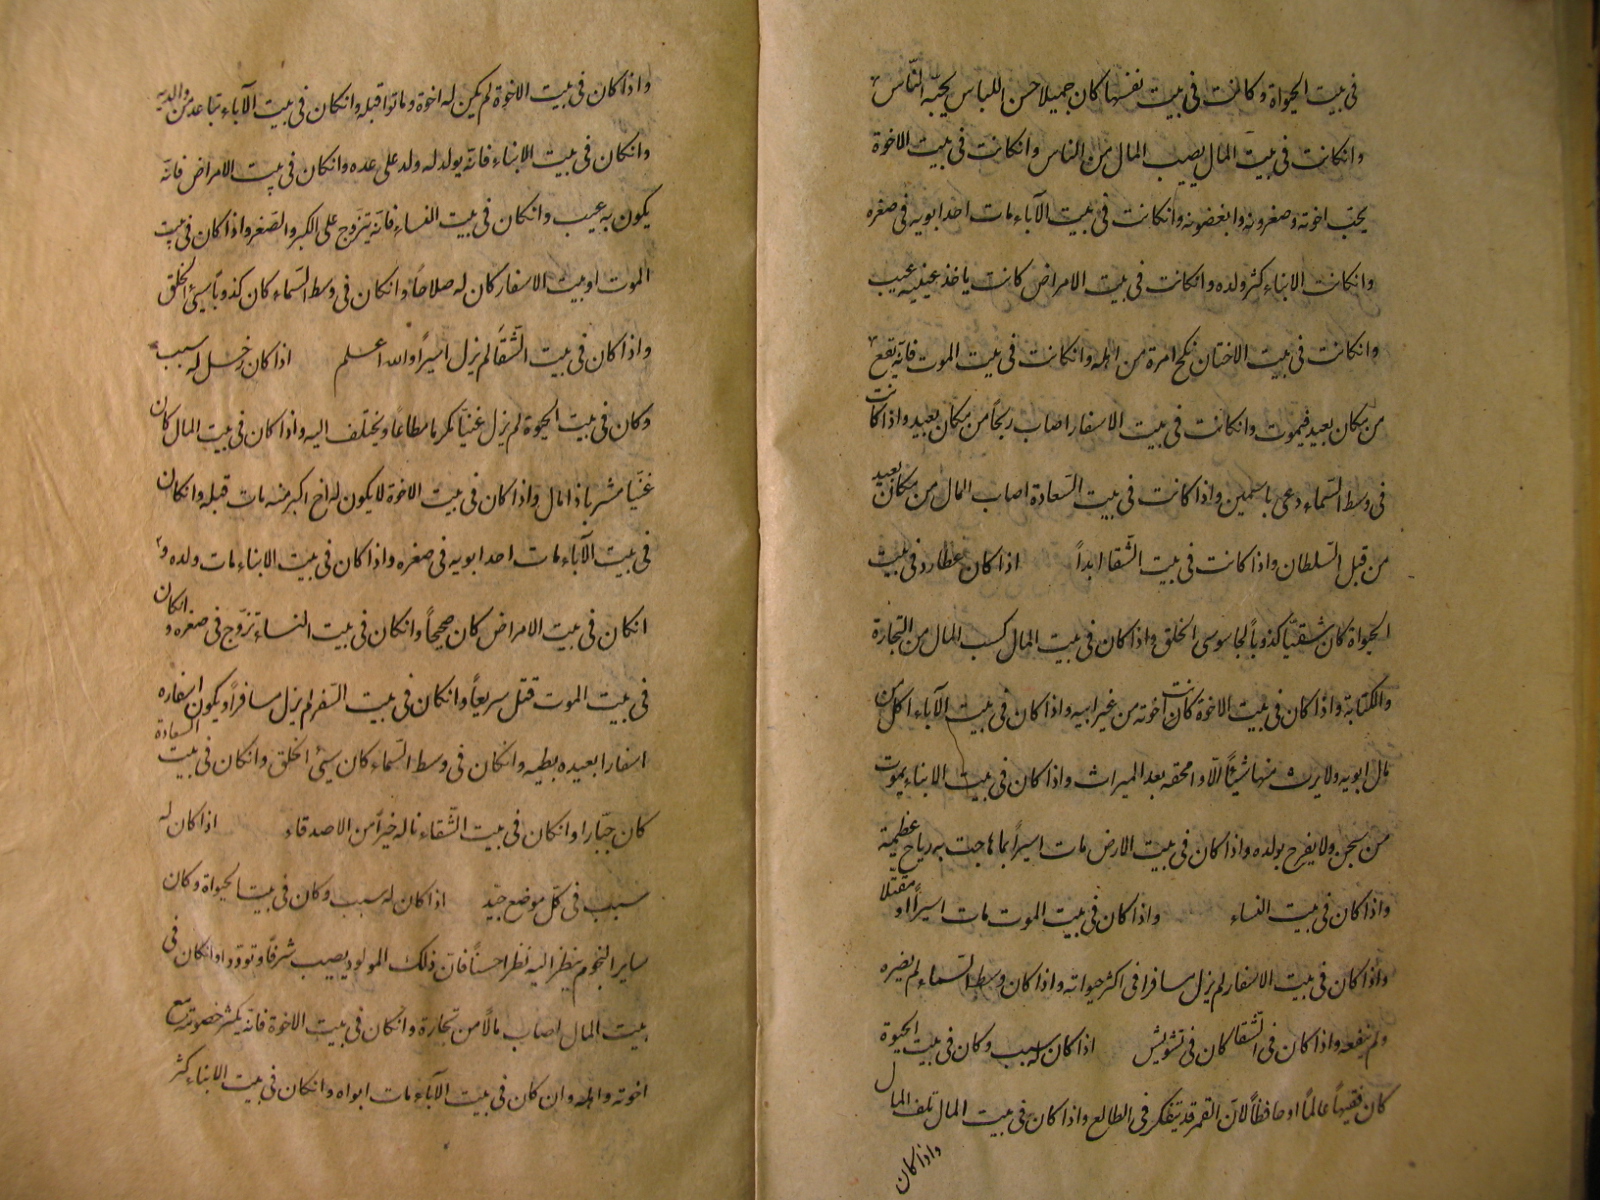 في بيت الحيواة وكانت في بيت نفسها كان جميلا حسن اللباس يحبه الناس
وانكانت في بيت المال يصيب المال من الناس وانكانت في بيت الاخوة
يحب اخوته وصغرونه وابغضونه وانكانت في بيت الآباء مات احد ابويه في صغره
وانكانت الابناء كثر ولده وانكانت في بيت الامراض كانت ياخذ عينيه عيب
وانكانت في بيت الاختان نكح امرة من اهله وانكانت في بيت الموت فانه يقع
من مكان بعيد فيموت وانكانت في بيت الاسفار اصاب ربحاً من مكان بعيد واذا كانت
في وسط السماء دعى باسمين واذا كانت في بيت السعادة اصاب المال من مكان بعيد
من قبل السلطان واذا كانت في بيت الشقا ابداً اذا كان عطارد في بيت
الحيواة كان شقياً كذوباً جاسوسى الخلق واذا كان في بيت المال كسب المال من التجارة
والكتابة واذا كان في بيت الاخوة كانت اخوته من غير ابيه واذا كان في بيت الآباء اكل من
مال ابويه ولا يرث منها شيئاً الا وامحقه بعد الميراث واذا كان في بيت الابناء يموت
من سجن ولا يفرح بولده واذا كان في بيت الارض مات اسيراً بما هاجت به رياح عظيمة
واذا كان في بيت النساء واذا كان في بيت الموت مات اسيراً او مقتلا
واذا كان في بيت الاسفار لم يزل مسافرا في اكثر حيواته واذا كان وسط السماء لم يضره
ولم ينفعه واذا كان في الشقا كان في تشويش اذا كان له سبب وكان في بيت الحيوة
كان فقيهاً عالماً او حافظاً لان القمر قد يتفكر في الطالع واذا كان في بيت المال تلف المال
واذا كان
واذا كان في بيت الاخوة لم يكن له اخوة وماتوا قبله وانكان في بيت الآباء تباعد من والديه
وانكان في بيت الابناء فانه يولد له ولد على عده وانكان في بيت الامراض فانه
يكون به عيب وانكان في بيت النساء فانه يتزوج على الكبر والصغر واذا كان في بيت
الموت او بيت الاسفار كان له صلاحاً وانكان في وسط السماء كان كذوباً سيئ الخلق
واذا كان في بيت الشقا لم يزل اسيراً والله اعلم اذا كان زحل له سبب
وكان في بيت الحيوة لم يزل غنيا مكرما مطاعاً ويختلف اليه واذا كان في بيت المال كان
غنيا مشربا ذا مال واذا كان في بيت الاخوة لا يكون له اخ اكبر منه مات قبله وانكان
في بيت الآباء مات احد ابويه في صغره واذا كان في بيت الابناء مات ولده و
انكان في بيت الامراض كان صحيحاً وانكان في بيت النساء تزوج في صغره وانكان
في بيت الموت قتل سريعاً وانكان في بيت السفر لم يزل مسافراً ويكون اسفاره
اسفارا بعيده بطيه وانكان في وسط السماء كان سيئ الخلق وانكان في بيت السعادة
كان جبارا وانكان في بيت الشقاء ناله خيراً من الاصدقاء اذا كان له
سبب في كل موضع جيد اذا كان له سبب وكان في بيت الحيواة وكان
ساير النجوم ينظر اليه نظرا حسناً فان ذلك المولود يصيب شرفاً وتوددا وانكان في
بيت المال اصاب مالاً من تجارة وانكان في بيت الاخوة فانه يكثر خصومته مع
اخوته واهله وان كان في بيت الآباء مات ابواه وانكان في بيت الابناء كثر